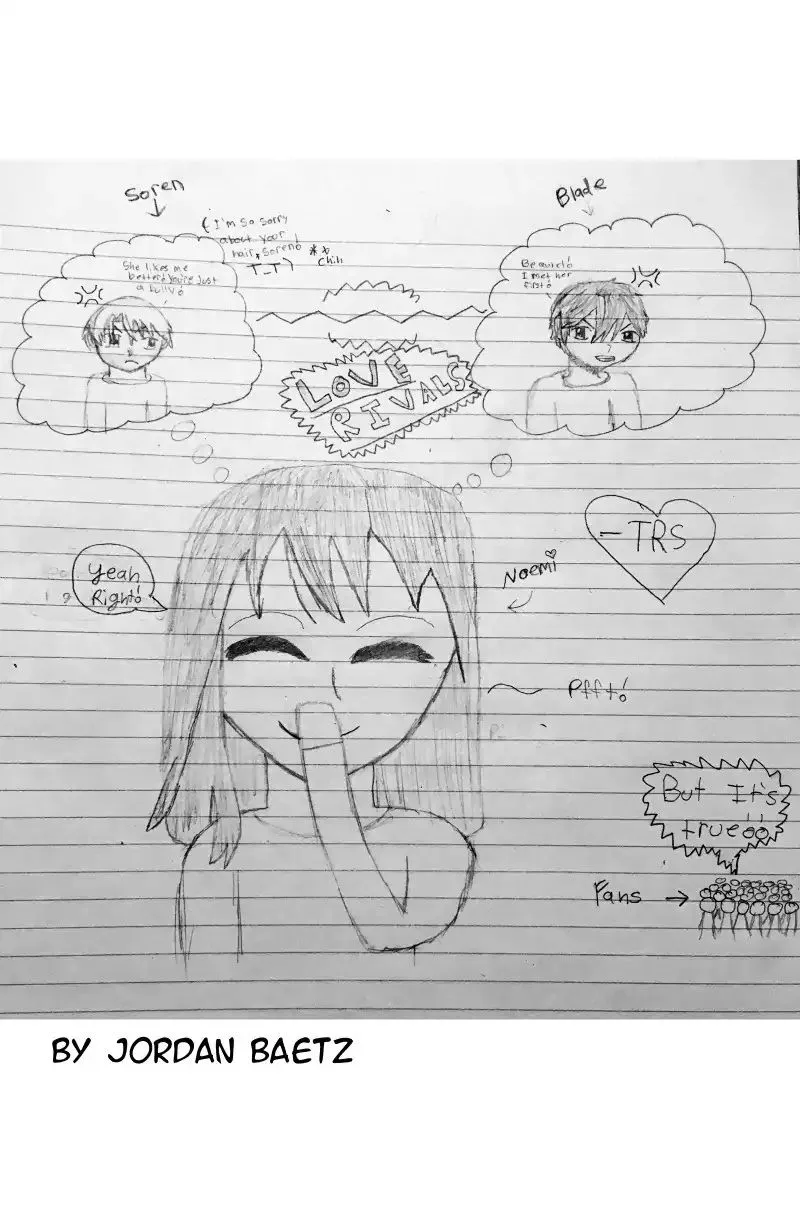 Soren
Blade
(I'm so sorry
about your
hair, Soren!
T_T)
** Chih
She likes me
better! You're just
a bully!
Be quiet!
I met her
first!
LOVE
RIVALS
-TRS
Yeah
Right!
Noemi
Pfft!
But It's
true!!
Fans
BY JORDAN BAETZ